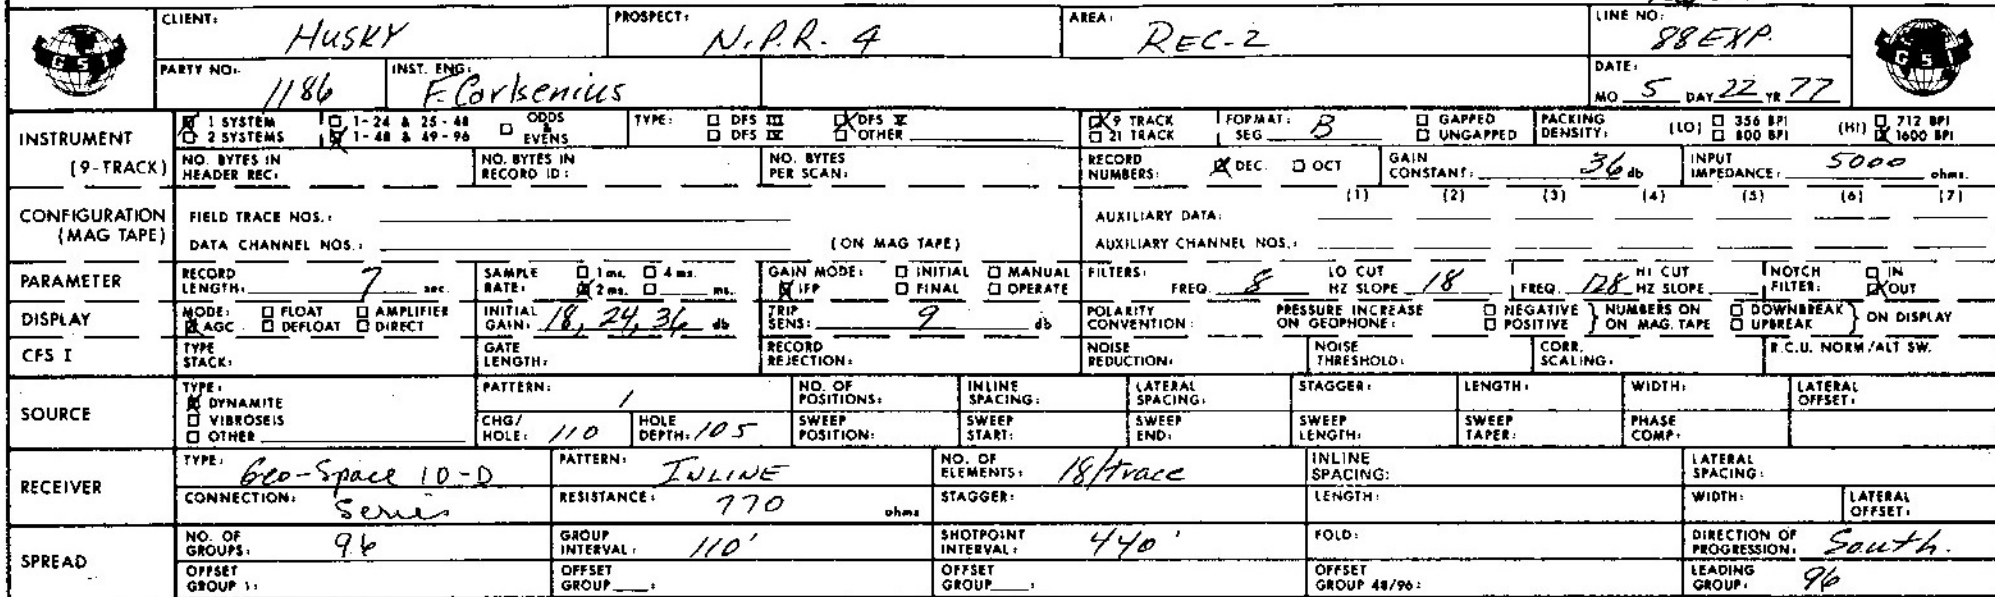 CLIENT: HUSKY PROSPECT: N.P.R. 4 AREA: REC-2 LINE NO: 88EXP.
GSI GSI
PARTY NO: 1186 INST. ENG: F. Corkenius DATE: MO 5 DAY 22 YR 77
INSTRUMENT (9-TRACK) ☒ 1 SYSTEM ☐ 2 SYSTEMS ☐ 1-24 & 25-48 ☒ 1-48 & 49-96 ☐ ODDS & EVENS TYPE: ☐ DFS III ☐ DFS IV ☒ DFS V ☐ OTHER ☒ 9 TRACK ☐ 21 TRACK FORMAT: SEG B ☐ GAPPED ☐ UNGAPPED PACKING DENSITY: (LO) ☐ 356 BPI ☐ 800 BPI (HI) ☐ 712 BPI ☒ 1600 BPI
NO. BYTES IN HEADER REC: NO. BYTES IN RECORD ID: NO. BYTES PER SCAN: RECORD NUMBERS: ☒ DEC. ☐ OCT GAIN CONSTANT: 36 db INPUT IMPEDANCE: 5000 ohms.
CONFIGURATION (MAG TAPE) FIELD TRACE NOS.: AUXILIARY DATA: (1) (2) (3) (4) (5) (6) (7)
DATA CHANNEL NOS.: (ON MAG TAPE) AUXILIARY CHANNEL NOS.:
PARAMETER RECORD LENGTH: 7 sec. SAMPLE RATE: ☐ 1 ms. ☐ 4 ms. ☒ 2 ms. ☐ ms. GAIN MODE: ☐ INITIAL ☐ MANUAL ☒ IFP ☐ FINAL ☐ OPERATE FILTERS: FREQ. 8 LO CUT HZ SLOPE 18 FREQ. 128 HI CUT HZ SLOPE NOTCH FILTER: ☐ IN ☒ OUT
DISPLAY MODE: ☐ FLOAT ☐ AMPLIFIER ☒ AGC ☐ DEFLOAT ☐ DIRECT INITIAL GAIN: 18, 24, 36 db TRIP SENS: 9 db POLARITY CONVENTION: PRESSURE INCREASE ON GEOPHONE: ☐ NEGATIVE ☐ POSITIVE } NUMBERS ON MAG. TAPE ☐ DOWNBREAK ☐ UPBREAK } ON DISPLAY
CFS I TYPE STACK: GATE LENGTH: RECORD REJECTION: NOISE REDUCTION: NOISE THRESHOLD: CORR. SCALING: R.C.U. NORM/ALT SW.
SOURCE TYPE: ☒ DYNAMITE ☐ VIBROSEIS ☐ OTHER PATTERN: 1 NO. OF POSITIONS: INLINE SPACING: LATERAL SPACING: STAGGER: LENGTH: WIDTH: LATERAL OFFSET:
CHG/HOLE: 110 HOLE DEPTH: 105 SWEEP POSITION: SWEEP START: SWEEP END: SWEEP LENGTH: SWEEP TAPER: PHASE COMP:
RECEIVER TYPE: Geo-Space 10-D PATTERN: INLINE NO. OF ELEMENTS: 18/trace INLINE SPACING: LATERAL SPACING:
CONNECTION: Series RESISTANCE: 770 ohms STAGGER: LENGTH: WIDTH: LATERAL OFFSET:
SPREAD NO. OF GROUPS: 96 GROUP INTERVAL: 110' SHOTPOINT INTERVAL: 440' FOLD: DIRECTION OF PROGRESSION: South.
OFFSET GROUP 1: OFFSET GROUP : OFFSET GROUP : OFFSET GROUP 48/96: LEADING GROUP: 96